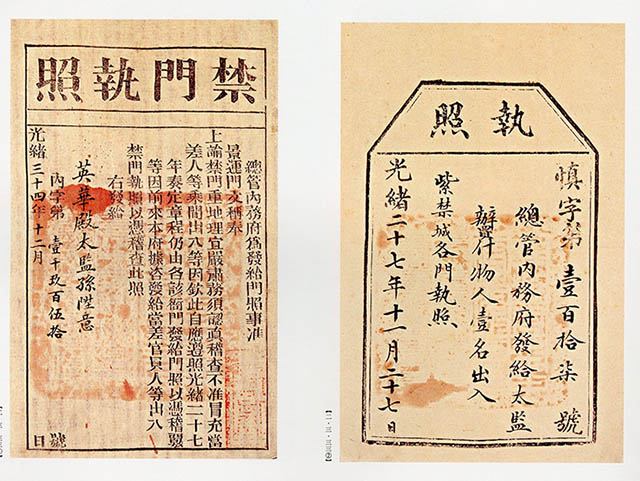 禁門執照
總管內務府為發給門照事准
景運門文稱奉
上諭禁門重地理宜嚴肅務須認真稽查不准冒充當
差人等乘間出入等因欽此自應遵照光緒二十七
年奏定章程仍由各該衙門發給門照以憑稽查
等因前來本府據咨發給當差官員人等出入
禁門執照以憑稽查此照
右發給
英華殿太監孫陞意
內字第壹千玖百伍拾號
光緒三十四年十二月日
執照
慎字第壹百拾柒號
總管內務府發給太監
辦買什物人壹名出入
紫禁城各門執照
光緒二十七年十一月二十七日
【二·三·三三②】